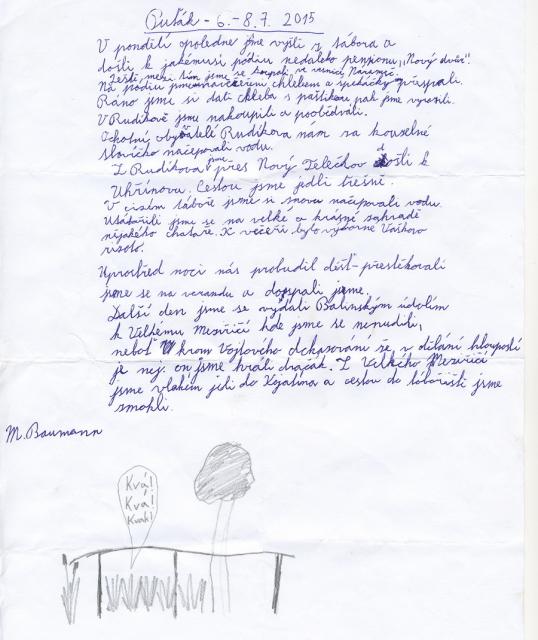 Puťák - 6.-8.7. 2015
V pondělí opoledne jsme vyšli s tábora a
došli k jakémusi pódiu nedaleko penzionu „Nový dvůr".
Ještě mezi tím jsme se koupali ve vesnici Náramec.
Na pódiu jsme navečeřeni chlebem a špekáčky přespali.
Ráno jsme si dali chleba s paštikou pak jsme vyrazili.
V Rudíkově jsme nakoupili a poobědvali.
Ochotní obyvatelé Rudíkova nám za kouzelné
slovíčko načepovali vodu.
Z Rudíkova jsme přes Nový Telečkov došli k
Uhřínovu. Cestou jsme jedli třešně.
V cizém táboře jsme si znovu načepovali vodu.
Utábořili jsme se na velké a krásné zahradě
nějakého chataře. K večeři bylo výborné Vaškovo
rizoto.
Uprostřed noci nás probudil déšť-přestěhovali
jsme se na verandu a dospali jsme.
Další den jsme se vydali Balinským údolím
k Velkému Meziříčí kde jsme se nenudili,
neboť krom Vojtového dokazování se, v dělání hlouposti
je nej. on jsme hráli dračák. Z Velkého Meziříčí
jsme vlakem jeli do a cestou do tábořiště jsme
zmokli.
M. Baumann
Kvá!
Kvá!
Kvak!